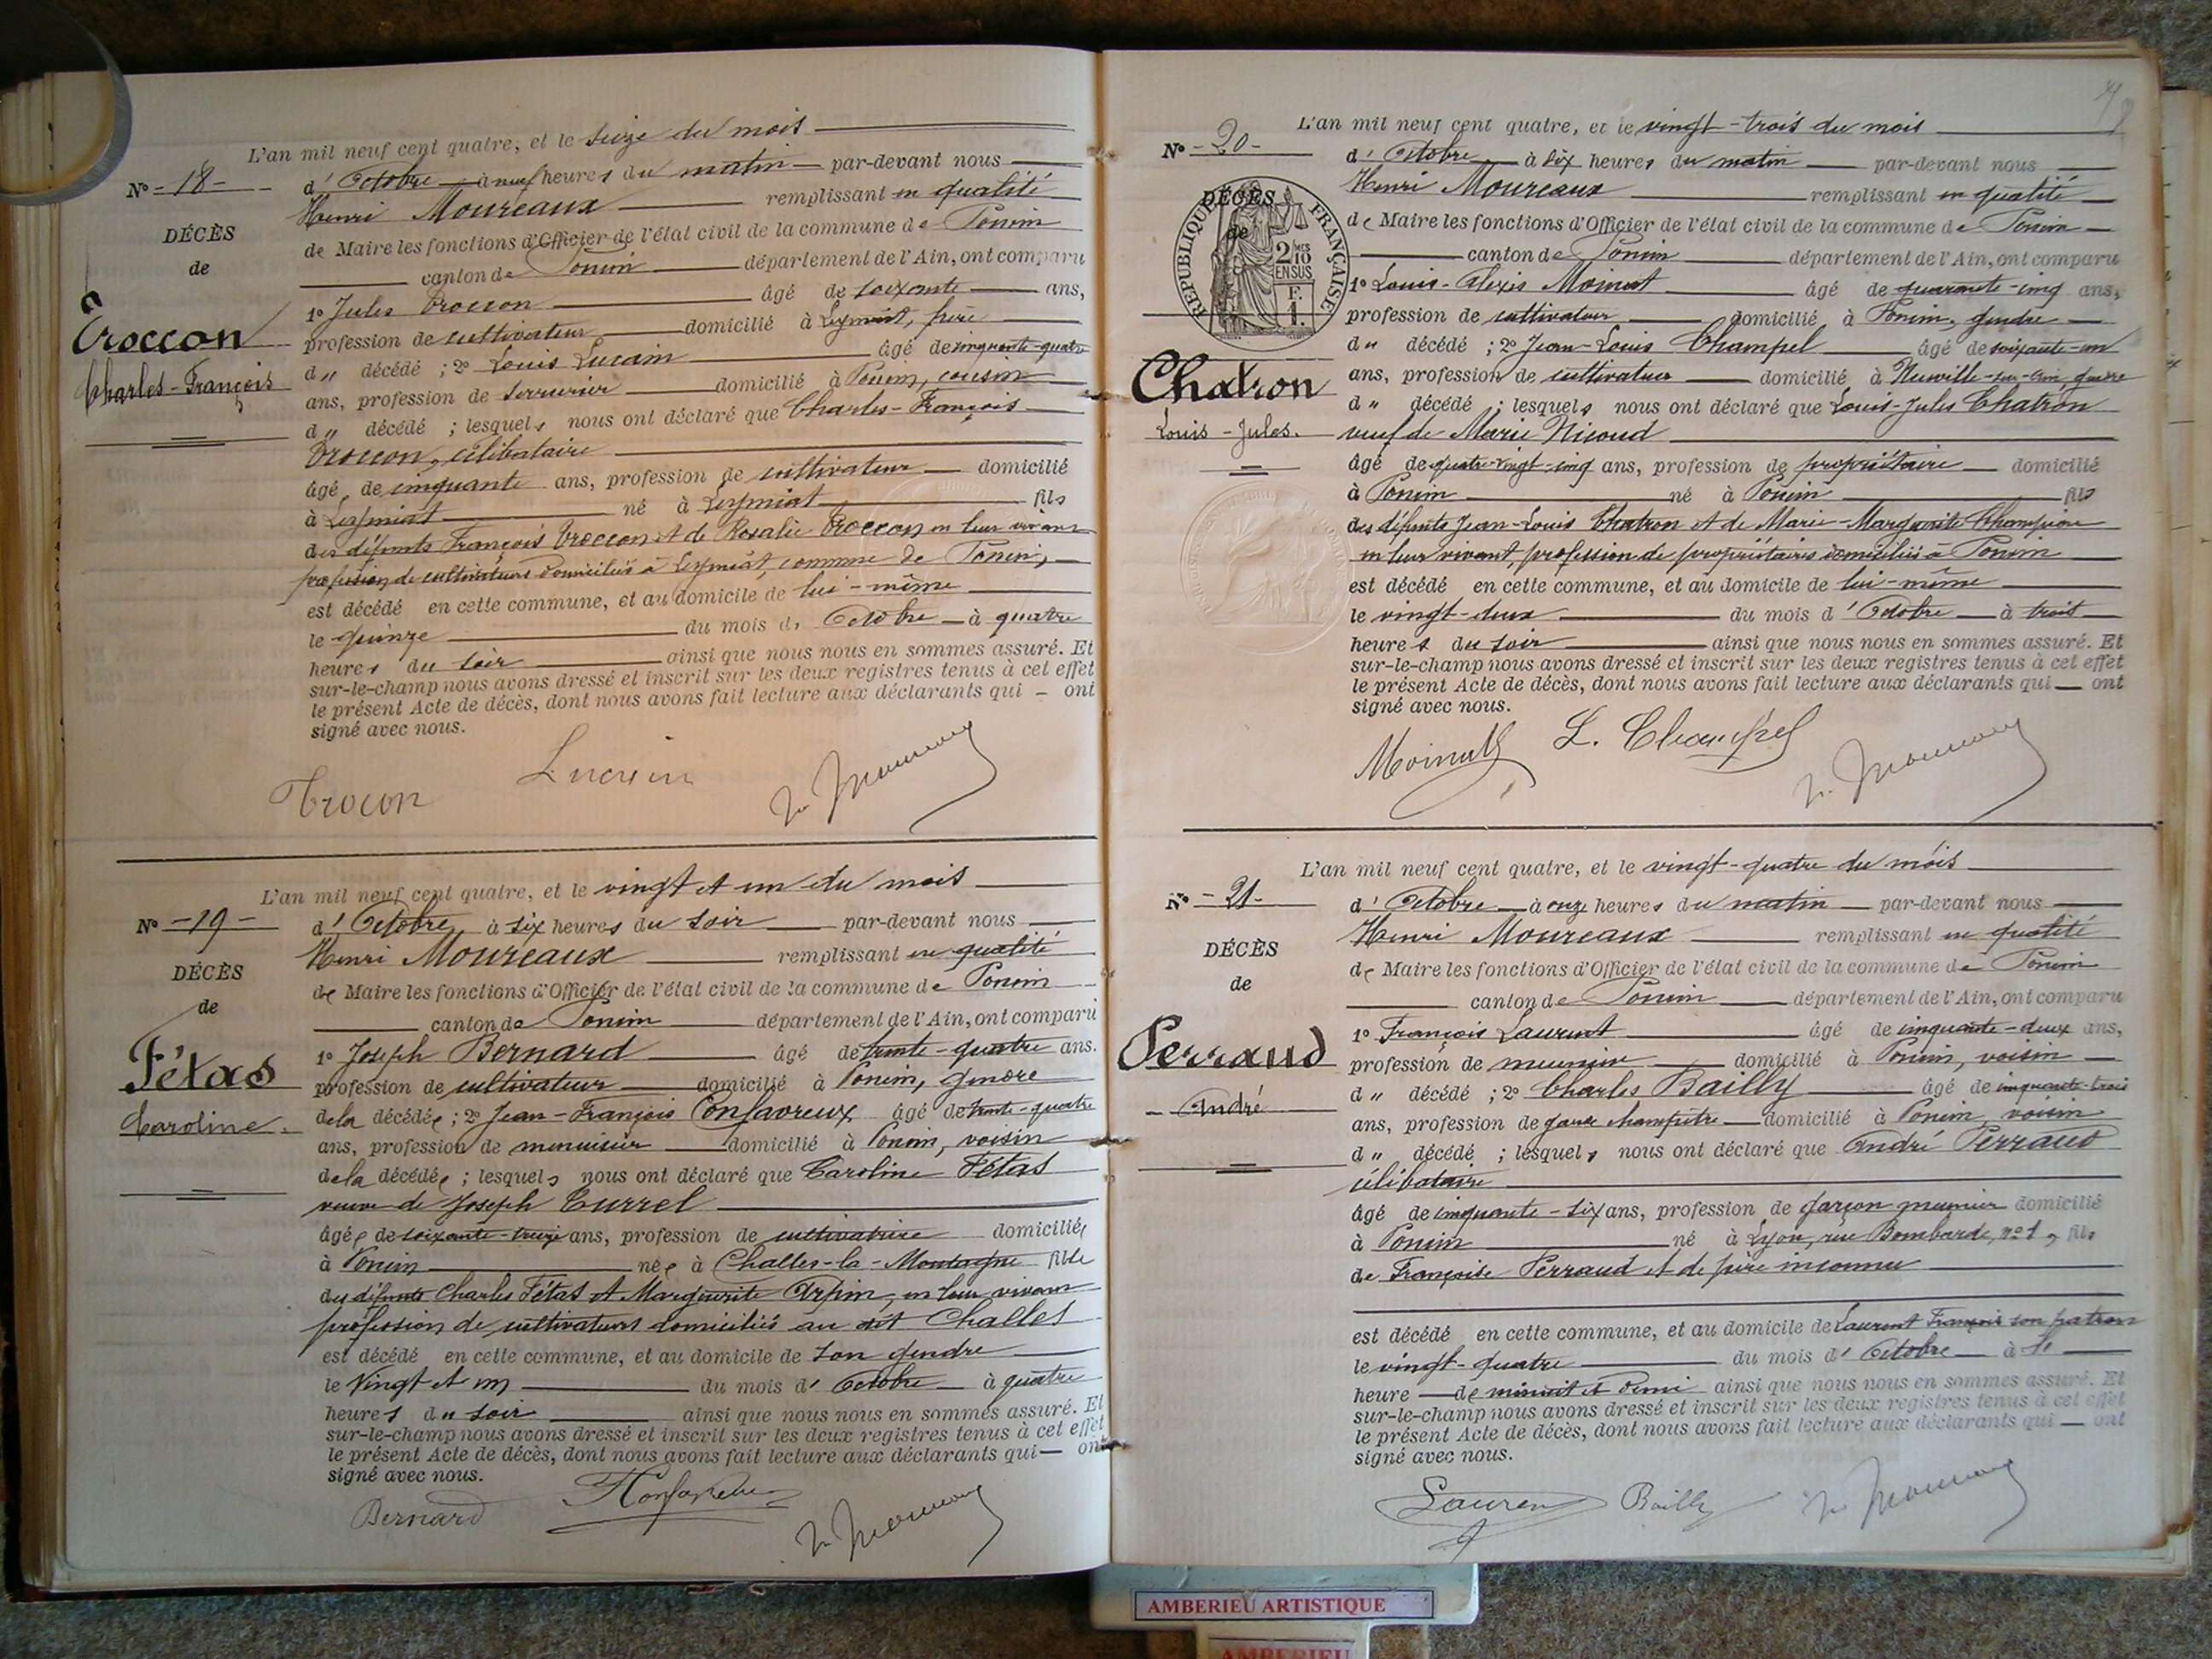 L'an mil neuf cent quatre, et le seize du mois
N° -18-
d'Octobre à neuf heures du matin par-devant nous
Henri Moureaux remplissant en qualité
DÉCÈS
de Maire les fonctions d'Officier de l'état civil de la commune de Poncin
de
canton de Poncin département de l'Ain, ont comparu
1° Jules Troccon âgé de soixante ans,
Troccon
profession de cultivateur domicilié à Leymiat, frère
d u décédé ; 2° Louis Lucain âgé de cinquante-quatre
Charles-François
ans, profession de serrurier domicilié à Poncin, cousin
d u décédé ; lesquels nous ont déclaré que Charles-François
Troccon, célibataire
âgé de cinquante ans, profession de cultivateur domicilié
à Leymiat né à Leymiat fils
des défunts François Troccon et de Rosalie Troccon en leur vivant
profession de cultivateurs domiciliés à Leymiat, commune de Poncin,
est décédé en cette commune, et au domicile de lui-même
le quinze du mois d' Octobre à quatre
heures du soir ainsi que nous nous en sommes assuré. Et
sur-le-champ nous avons dressé et inscrit sur les deux registres tenus à cet effet
le présent Acte de décès, dont nous avons fait lecture aux déclarants qui – ont
signé avec nous.
Trocon
L'an mil neuf cent quatre, et le vingt et un du mois
N° -19-
d'Octobre à six heures du soir par-devant nous
Henri Moureaux remplissant en qualité
DÉCÈS
de Maire les fonctions d'Officier de l'état civil de la commune de Poncin
de
canton de Poncin département de l'Ain, ont comparu
1° Joseph Bernard âgé de trente-quatre ans.
Fétas
profession de cultivateur domicilié à Poncin, gendre
Caroline.
de la décédée ; 2° Jean-François Confavreux âgé de trente-quatre
ans, profession de menuisier domicilié à Poncin, voisin
de la décédée ; lesquels nous ont déclaré que Caroline Fétas
veuve de Joseph Currel
âgée de soixante-treize ans, profession de cultivatrice domiciliée
à Poncin née à Challes-la-Montagne fille
des défunts Charles Fétas et Marguerite Arpin, en leur vivant
profession de cultivateurs domiciliés au dit Challes
est décédé en cette commune, et au domicile de son gendre
le Vingt et un du mois d' Octobre à quatre
heures du soir ainsi que nous nous en sommes assuré. Et
sur-le-champ nous avons dressé et inscrit sur les deux registres tenus à cet effet
le présent Acte de décès, dont nous avons fait lecture aux déclarants qui — ont
signé avec nous.
Bernard
L'an mil neuf cent quatre, et le vingt-trois du mois
N° -20-
d'Octobre à six heures du matin par-devant nous
Henri Moureaux remplissant en qualité
DÉCÈS
de
RÉPUBLIQUE FRANÇAISE
2/10 MES
EN SUS
F.
1.
de Maire les fonctions d'Officier de l'état civil de la commune de Poncin
canton de Poncin département de l'Ain, ont comparu
1° Louis-Alexis Moinat âgé de quarante-cinq ans,
profession de cultivateur domicilié à Poncin, gendre
d u décédé ; 2° Jean-Louis Champel âgé de soixante-un
Chatron
ans, profession de cultivateur domicilié à Neuville-sur-Ain, gendre
d u décédé ; lesquels nous ont déclaré que Louis-Jules Chatron
Louis-Jules.
veuf de Marie Nicoud
âgé de quatre-vingt-cinq ans, profession de propriétaire domicilié
à Poncin né à Poncin fils
des défunts Jean-Louis Chatron et de Marie-Marguerite Champion
en leur vivant, profession de propriétaires domiciliés à Poncin
est décédé en cette commune, et au domicile de lui-même
le vingt-deux du mois d' Octobre à trois
heures du soir ainsi que nous nous en sommes assuré. Et
sur-le-champ nous avons dressé et inscrit sur les deux registres tenus à cet effet
le présent Acte de décès, dont nous avons fait lecture aux déclarants qui — ont
signé avec nous.
L. Champel
L'an mil neuf cent quatre, et le vingt-quatre du mois
N° -21-
d'Octobre à onze heures du matin par-devant nous
Henri Moureaux remplissant en qualité
DÉCÈS
de Maire les fonctions d'Officier de l'état civil de la commune de Poncin
de
canton de Poncin département de l'Ain, ont comparu
1° François Laurent âgé de cinquante-deux ans,
Perraud
profession de meunier domicilié à Poncin, voisin
d u décédé ; 2° Charles Bailly âgé de cinquante-trois
André
ans, profession de garde champêtre domicilié à Poncin, voisin
d u décédé ; lesquels nous ont déclaré que André Perraud
célibataire
âgé de cinquante-six ans, profession de garçon meunier domicilié
à Poncin né à Lyon, rue Bombarde, n° 1, fils
de Françoise Perraud et de père inconnu
est décédé en cette commune, et au domicile de Laurent François son patron
le vingt-quatre du mois d' Octobre à
heure de minuit et demi ainsi que nous nous en sommes assuré. Et
sur-le-champ nous avons dressé et inscrit sur les deux registres tenus à cet effet
le présent Acte de décès, dont nous avons fait lecture aux déclarants qui — ont
signé avec nous.
Laurent Bailly
AMBERIEU ARTISTIQUE
AMBERIEU